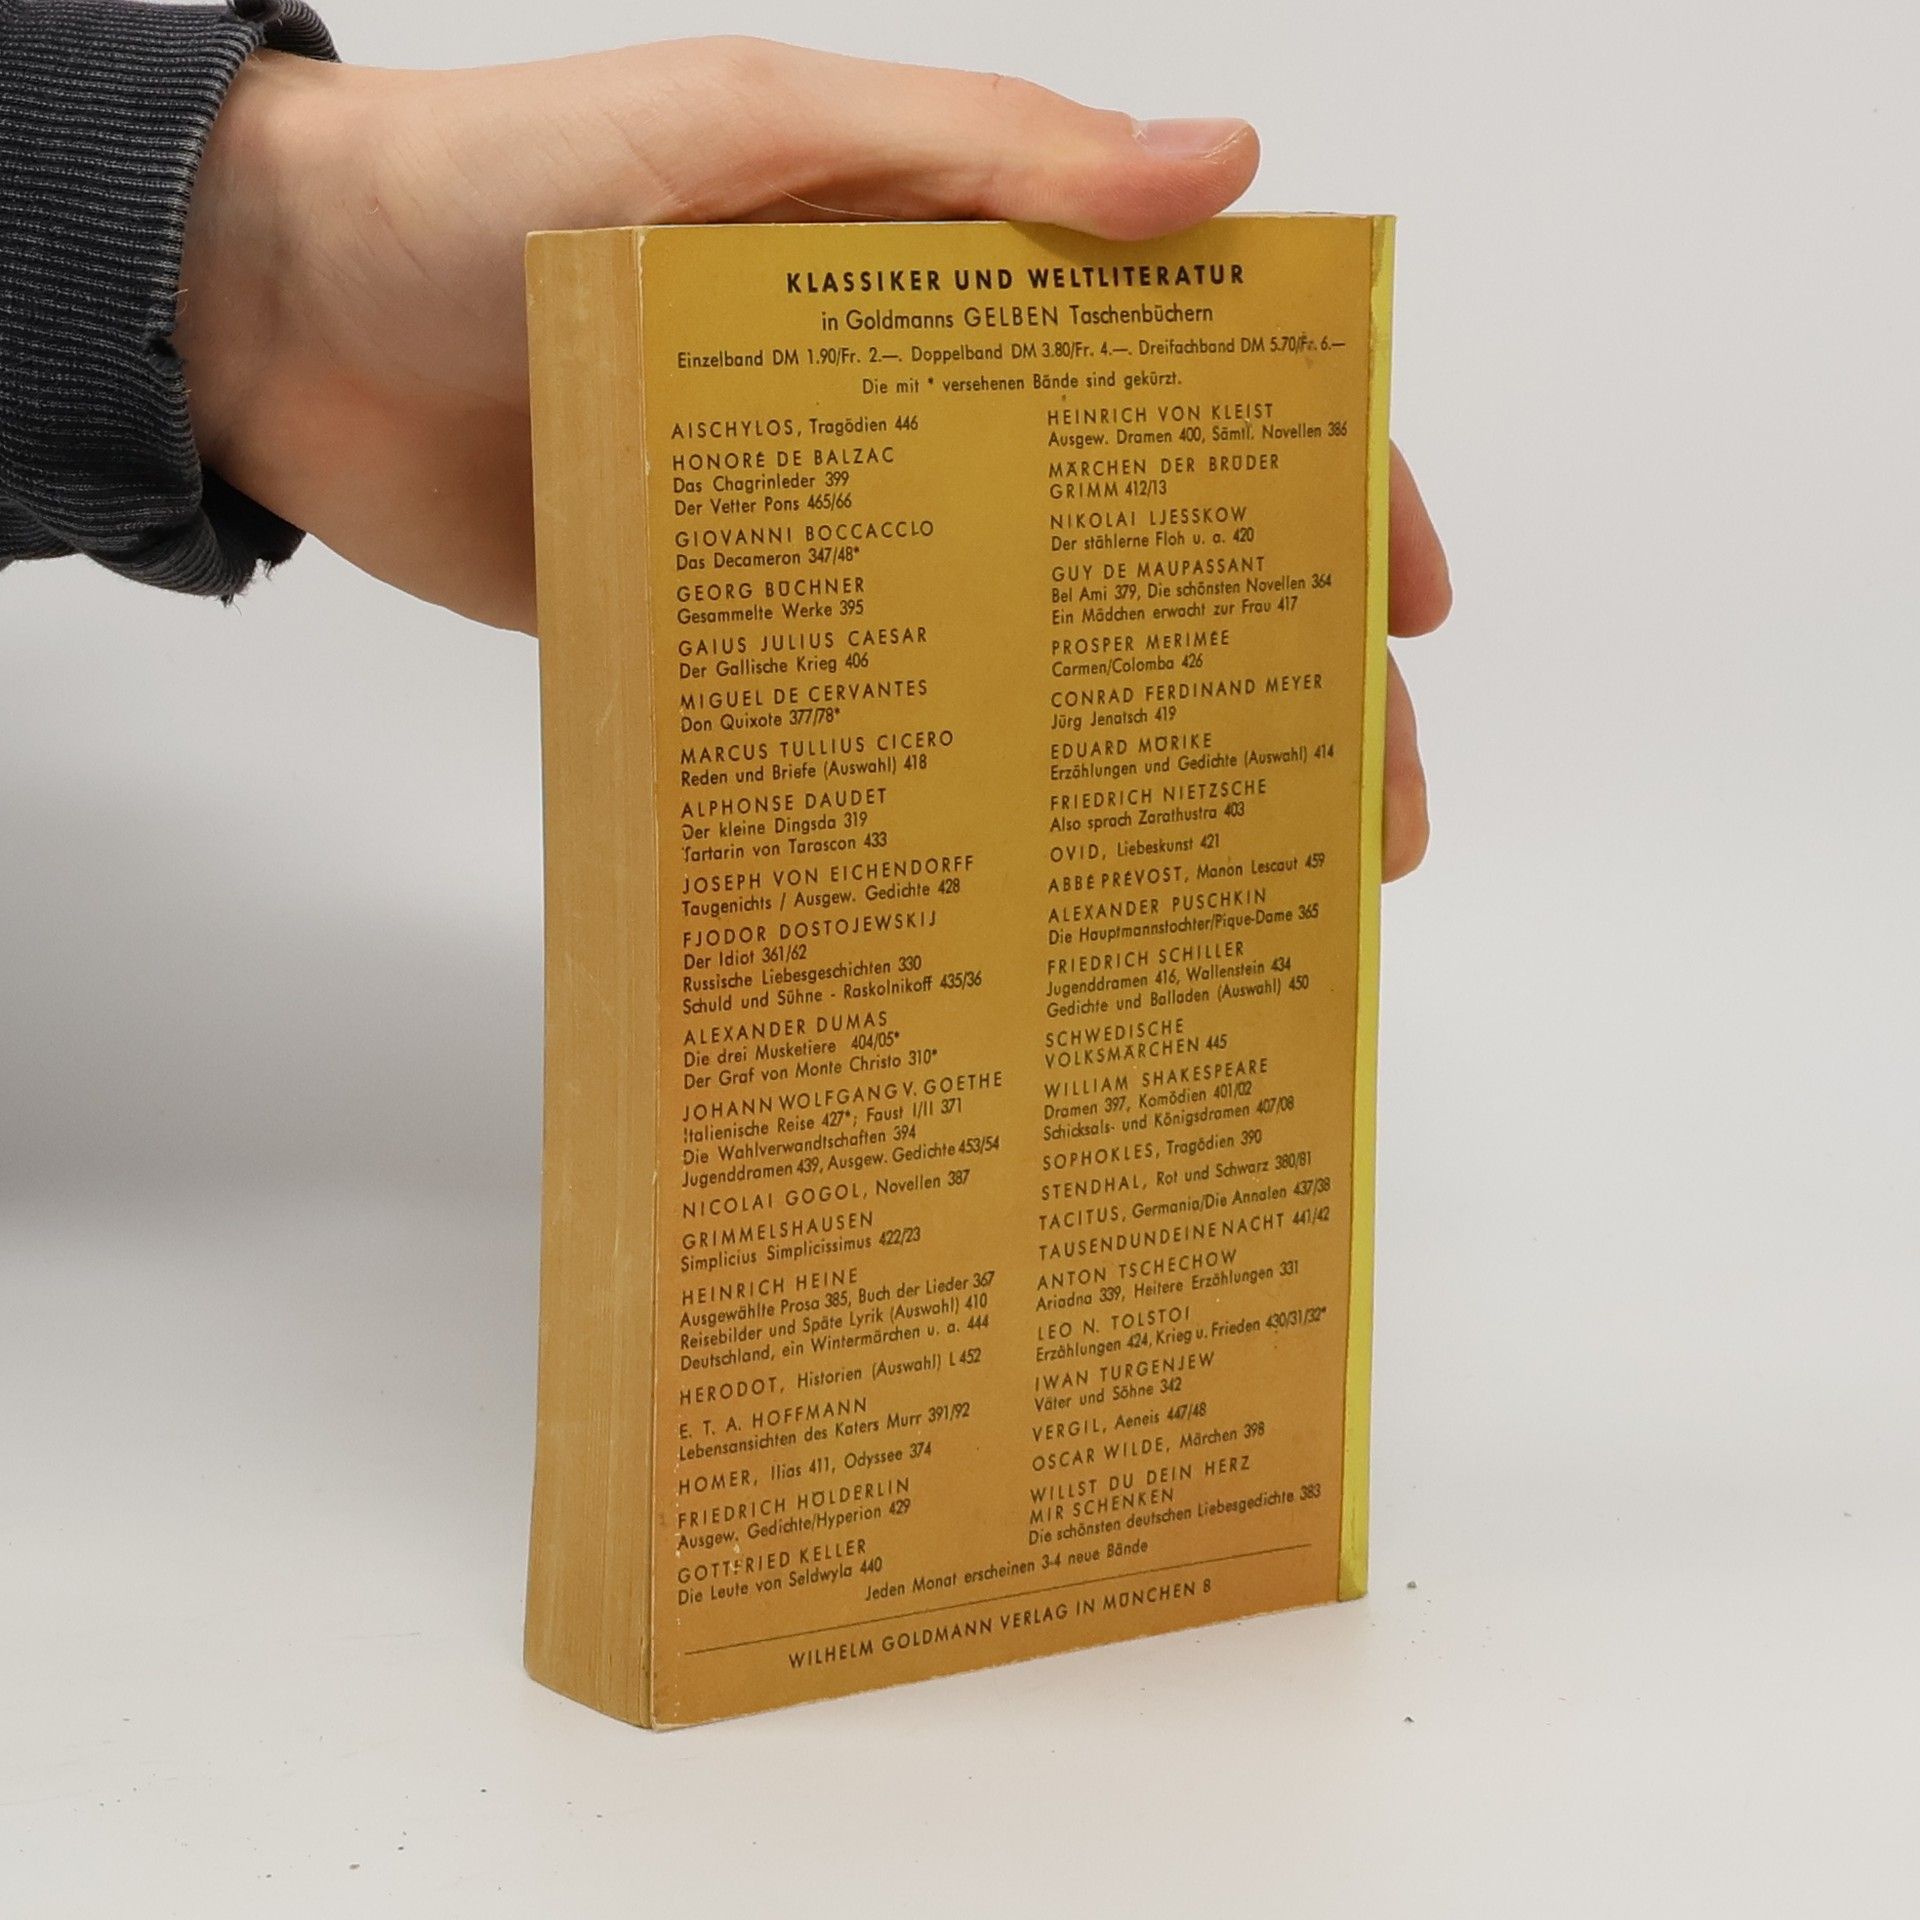 KLASSIKER UND WELTLITERATUR
in Goldmanns GELBEN Taschenbüchern
Einzelband DM 1.90/Fr. 2.—. Doppelband DM 3.80/Fr. 4.—. Dreifachband DM 5.70/Fr. 6.—
Die mit * versehenen Bände sind gekürzt.
AISCHYLOS, Tragödien 446
HONORÉ DE BALZAC
Das Chagrinleder 399
Der Vetter Pons 465/66
GIOVANNI BOCCACCLO
Das Decameron 347/48*
GEORG BÜCHNER
Gesammelte Werke 395
GAIUS JULIUS CAESAR
Der Gallische Krieg 406
MIGUEL DE CERVANTES
Don Quixote 377/78*
MARCUS TULLIUS CICERO
Reden und Briefe (Auswahl) 418
ALPHONSE DAUDET
Der kleine Dingsda 319
Tartarin von Tarascon 433
JOSEPH VON EICHENDORFF
Taugenichts / Ausgew. Gedichte 428
FJODOR DOSTOJEWSKIJ
Der Idiot 361/62
Russische Liebesgeschichten 330
Schuld und Sühne - Raskolnikoff 435/36
ALEXANDER DUMAS
Die drei Musketiere 404/05*
Der Graf von Monte Christo 310*
JOHANN WOLFGANG V. GOETHE
Italienische Reise 427*; Faust I/II 371
Die Wahlverwandtschaften 394
Jugenddramen 439, Ausgew. Gedichte 453/54
NICOLAI GOGOL, Novellen 387
GRIMMELSHAUSEN
Simplicius Simplicissimus 422/23
HEINRICH HEINE
Ausgewählte Prosa 385, Buch der Lieder 367
Reisebilder und Späte Lyrik (Auswahl) 410
Deutschland, ein Wintermärchen u. a. 444
HERODOT, Historien (Auswahl) L 452
E. T. A. HOFFMANN
Lebensansichten des Katers Murr 391/92
HOMER, Ilias 411, Odyssee 374
FRIEDRICH HÖLDERLIN
Ausgew. Gedichte/Hyperion 429
GOTTFRIED KELLER
Die Leute von Seldwyla 440
HEINRICH VON KLEIST
Ausgew. Dramen 400, Sämtl. Novellen 386
MÄRCHEN DER BRÜDER
GRIMM 412/13
NIKOLAI LJESSKOW
Der stählerne Floh u. a. 420
GUY DE MAUPASSANT
Bel Ami 379, Die schönsten Novellen 364
Ein Mädchen erwacht zur Frau 417
PROSPER MERIMÉE
Carmen/Colomba 426
CONRAD FERDINAND MEYER
Jürg Jenatsch 419
EDUARD MÖRIKE
Erzählungen und Gedichte (Auswahl) 414
FRIEDRICH NIETZSCHE
Also sprach Zarathustra 403
OVID, Liebeskunst 421
ABBÉ PRÉVOST, Manon Lescaut 459
ALEXANDER PUSCHKIN
Die Hauptmannstochter/Pique-Dame 365
FRIEDRICH SCHILLER
Jugenddramen 416, Wallenstein 434
Gedichte und Balladen (Auswahl) 450
SCHWEDISCHE
VOLKSMÄRCHEN 445
WILLIAM SHAKESPEARE
Dramen 397, Komödien 401/02
Schicksals- und Königsdramen 407/08
SOPHOKLES, Tragödien 390
STENDHAL, Rot und Schwarz 380/81
TACITUS, Germania/Die Annalen 437/38
TAUSENDUNDEINE NACHT 441/42
ANTON TSCHECHOW
Ariadna 339, Heitere Erzählungen 331
LEO N. TOLSTOI
Erzählungen 424, Krieg u. Frieden 430/31/32*
IWAN TURGENJEW
Väter und Söhne 342
VERGIL, Aeneis 447/48
OSCAR WILDE, Märchen 398
WILLST DU DEIN HERZ
MIR SCHENKEN
Die schönsten deutschen Liebesgedichte 383
Jeden Monat erscheinen 3-4 neue Bände
WILHELM GOLDMANN VERLAG IN MÜNCHEN 8